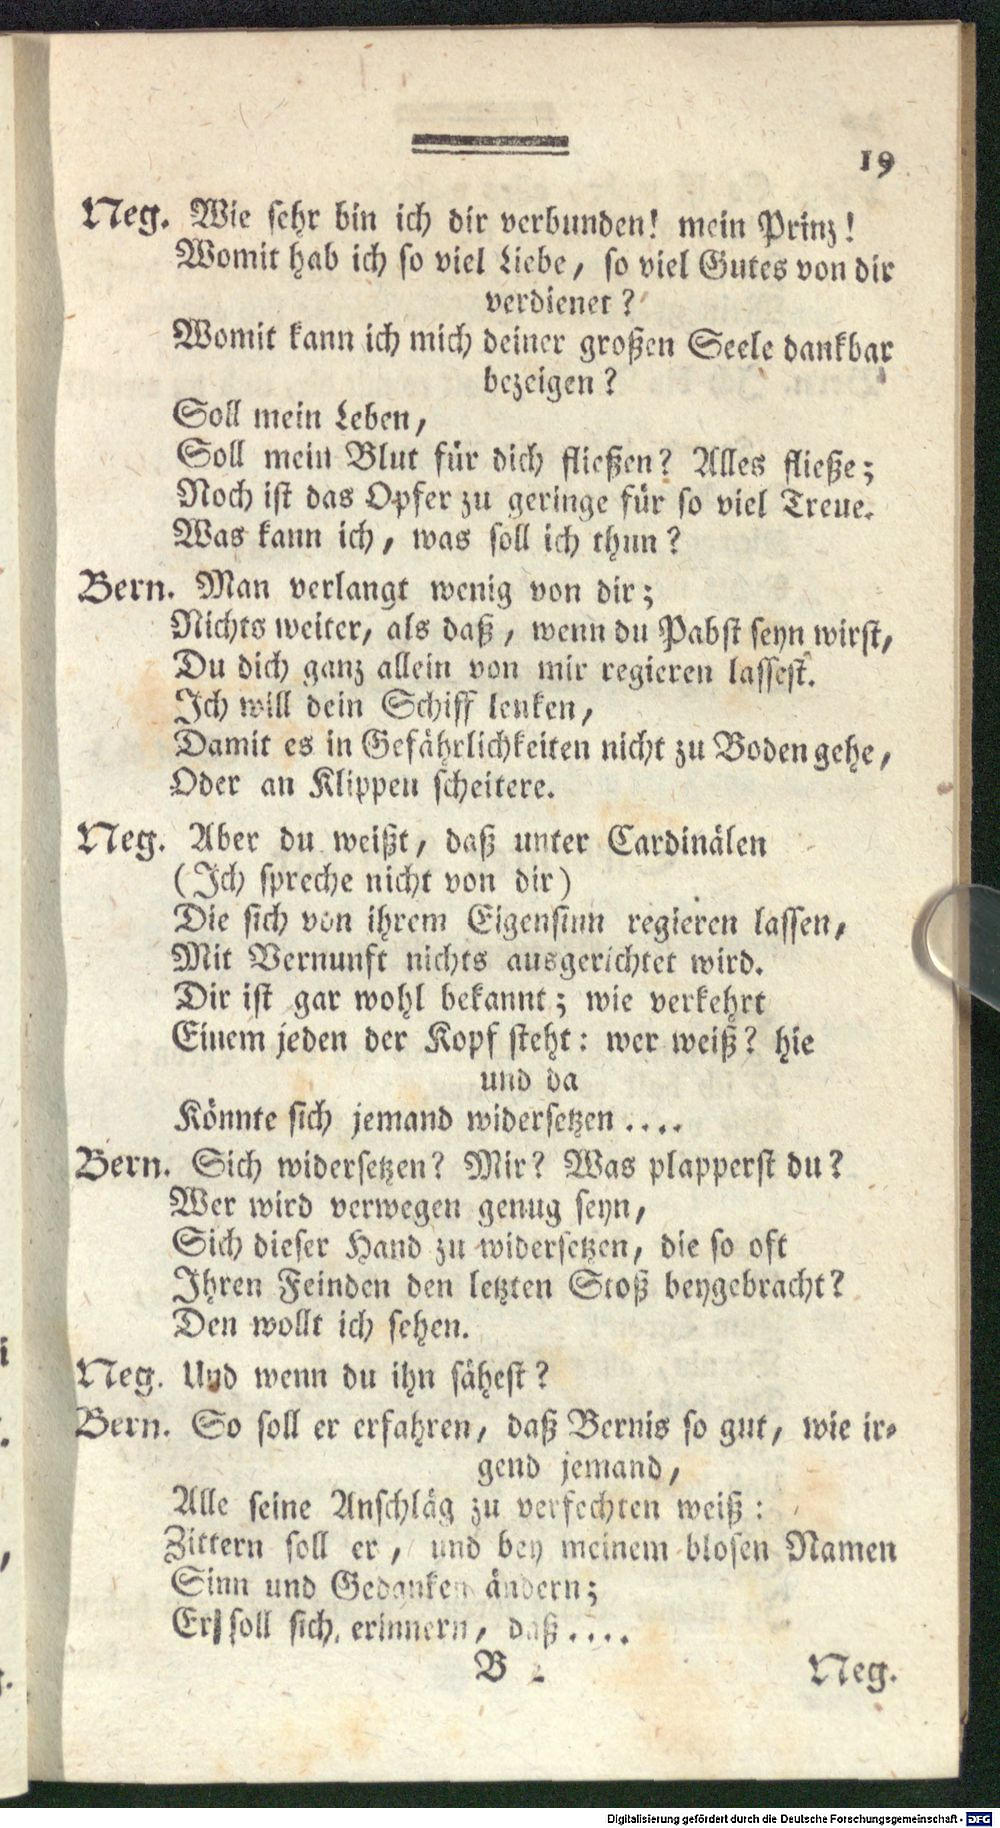 19
Neg. Wie sehr bin ich dir verbunden! mein Prinz!
Womit hab ich so viel Liebe, so viel Gutes von dir
verdienet?
Womit kann ich mich deiner großen Seele dankbar
bezeigen?
Soll mein Leben,
Soll mein Blut für dich fließen? Alles fließe;
Noch ist das Opfer zu geringe für so viel Treue.
Was kann ich, was soll ich thun?
Bern. Man verlangt wenig von dir;
Nichts weiter, als daß, wenn du Pabst seyn wirst,
Du dich ganz allein von mir regieren lassest.
Ich will dein Schiff lenken,
Damit es in Gefährlichkeiten nicht zu Boden gehe,
Oder an Klippen scheitere.
Neg. Aber du weißt, daß unter Cardinälen
(Ich spreche nicht von dir)
Die sich von ihrem Eigensinn regieren lassen,
Mit Vernunft nichts ausgerichtet wird.
Dir ist gar wohl bekannt; wie verkehrt
Einem jeden der Kopf steht: wer weiß? hie
und da
Könnte sich jemand widersetzen....
Bern. Sich widersetzen? Mir? Was plapperst du?
Wer wird verwegen genug seyn,
Sich dieser Hand zu widersetzen, die so oft
Ihren Feinden den letzten Stoß beygebracht?
Den wollt ich sehen.
Neg. Und wenn du ihn sähest?
Bern. So soll er erfahren, daß Bernis so gut, wie ir-
gend jemand,
Alle seine Anschläg zu verfechten weiß:
Zittern soll er, und bey meinem blosen Namen
Sinn und Gedanken ändern;
Er soll sich erinnern, daß....
B 2 Neg.
Digitalisierung gefördert durch die Deutsche Forschungsgemeinschaft - DFG